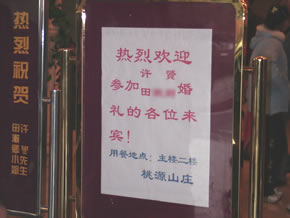 热烈祝贺
许 先生
田 小姐
热烈欢迎
许 贤
参加田 婚
礼的各位来
宾！
用餐地点：主楼二楼
桃源山庄